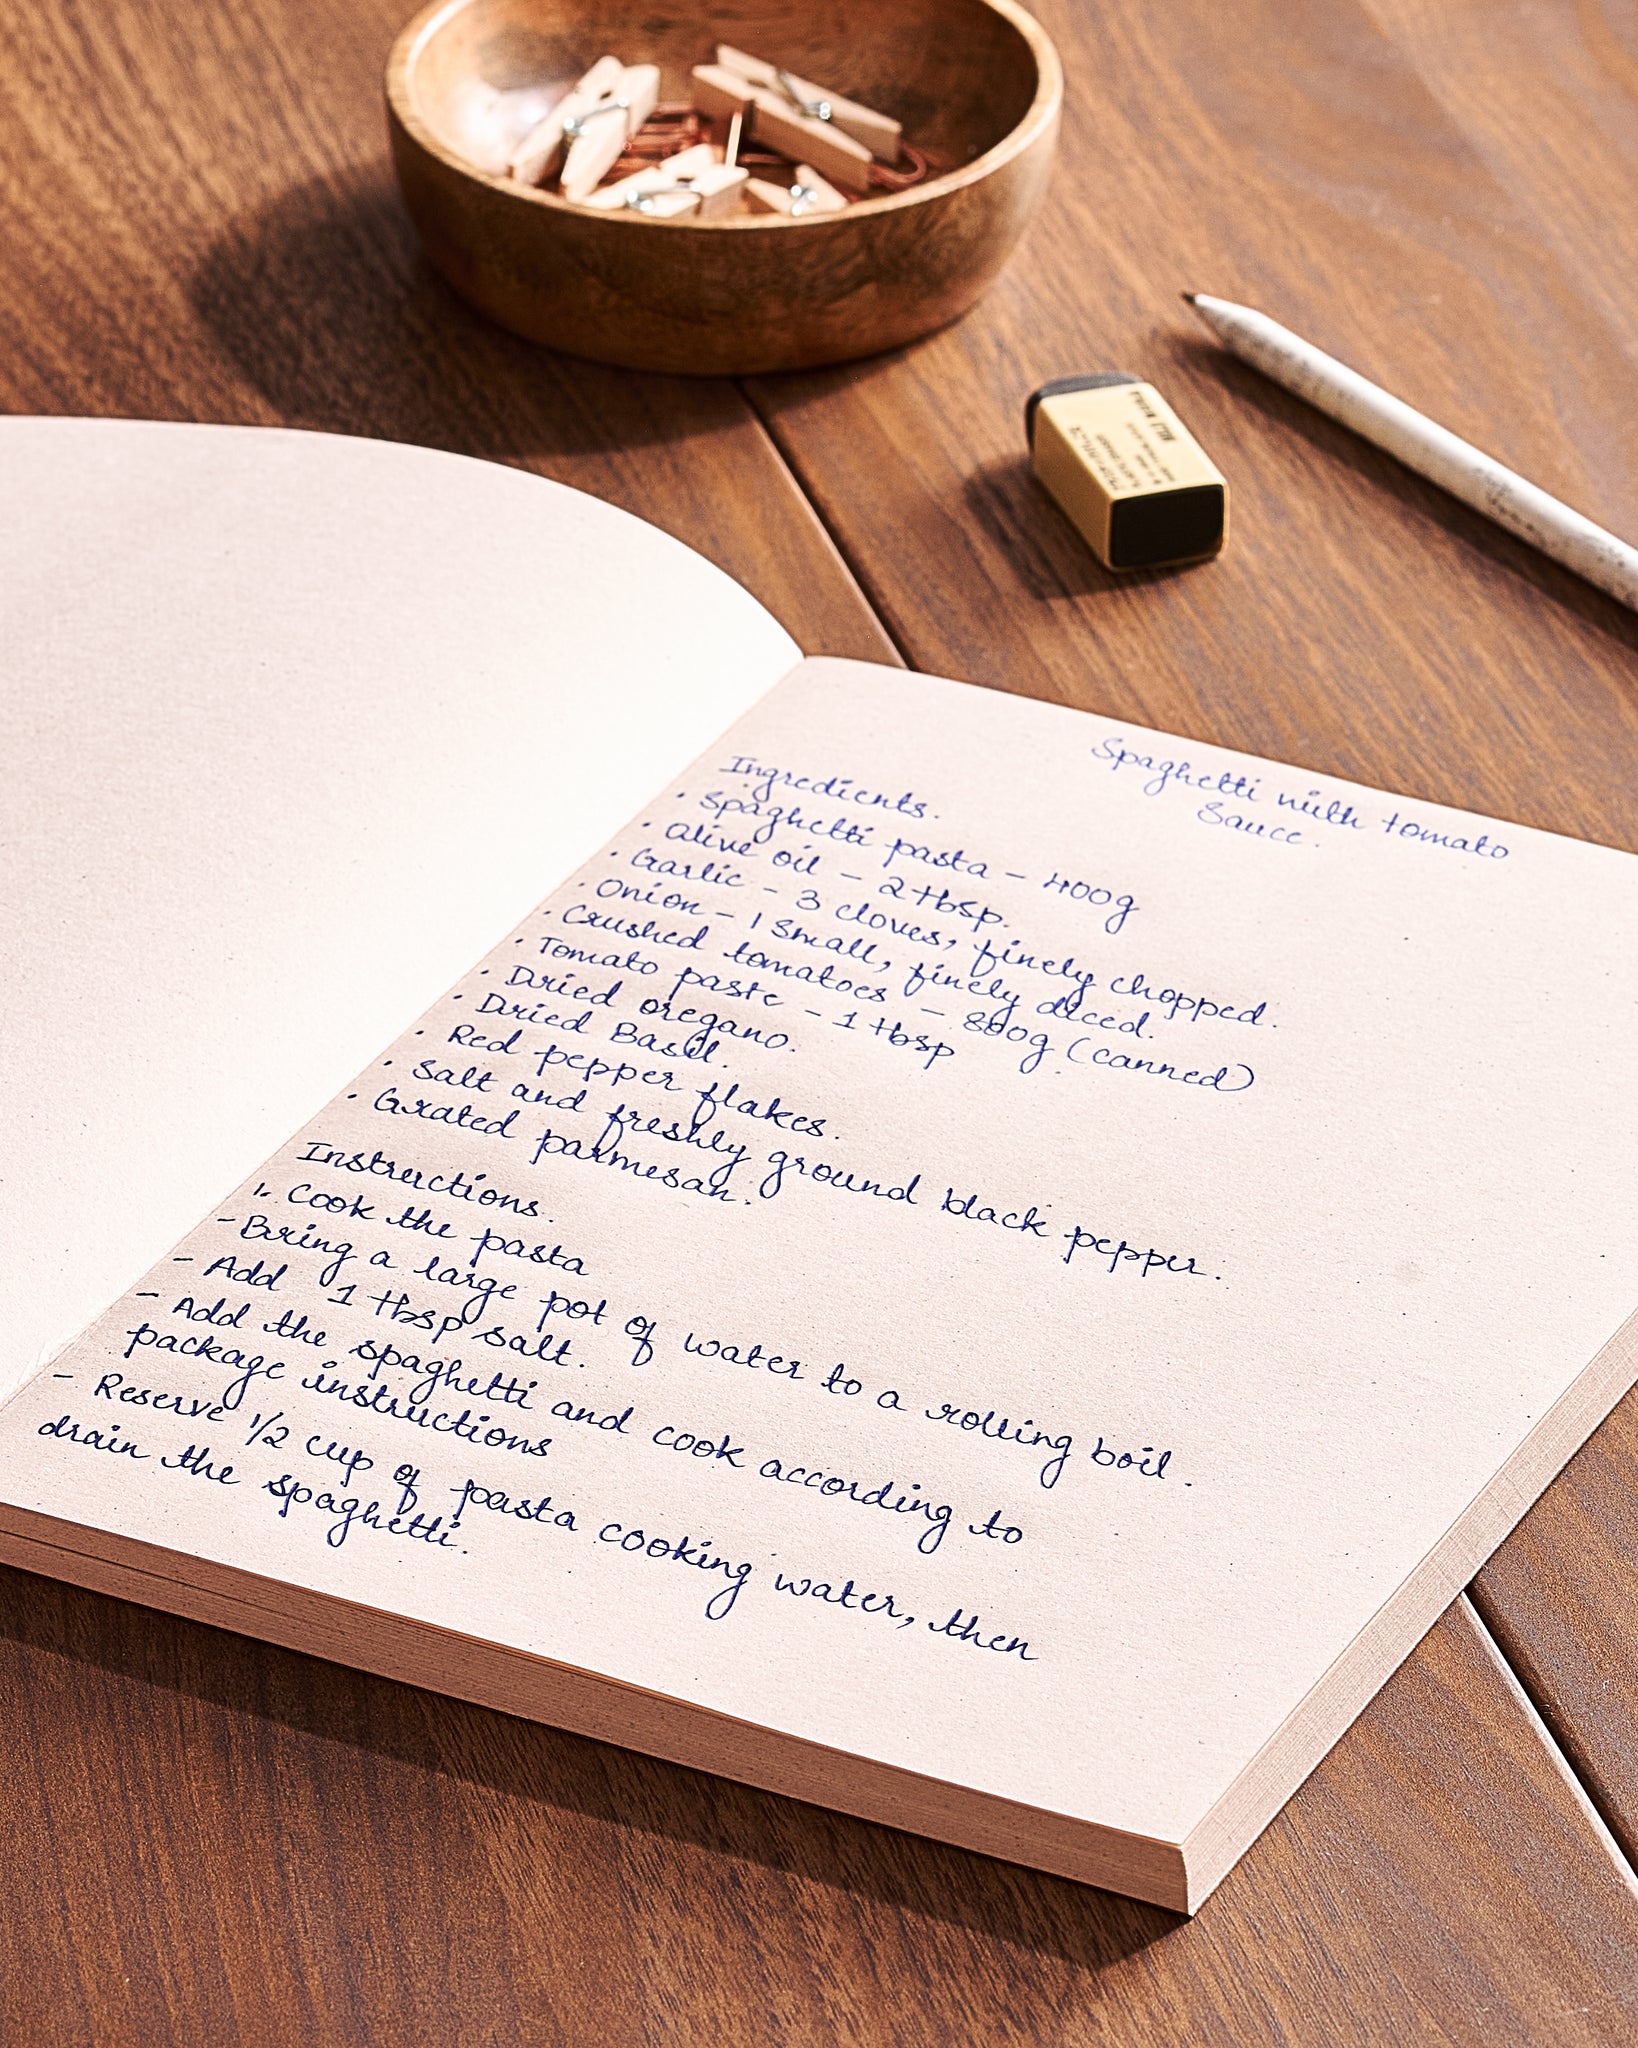 Spaghetti with tomato
Sauce.
Ingredients.
• Spaghetti pasta - 400g
• Olive oil - 2 tbsp.
• Garlic - 3 cloves, finely chopped.
• Onion - 1 small, finely diced.
• Crushed tomatoes - 800g (canned)
• Tomato paste - 1 tbsp
• Dried oregano.
• Dried Basil.
• Red pepper flakes.
• Salt and freshly ground black pepper.
• Grated parmesan.
Instructions.
1. Cook the pasta
- Bring a large pot of water to a rolling boil.
- Add 1 tbsp salt.
- Add the spaghetti and cook according to
package instructions
- Reserve 1/2 cup of pasta cooking water, then
drain the spaghetti.